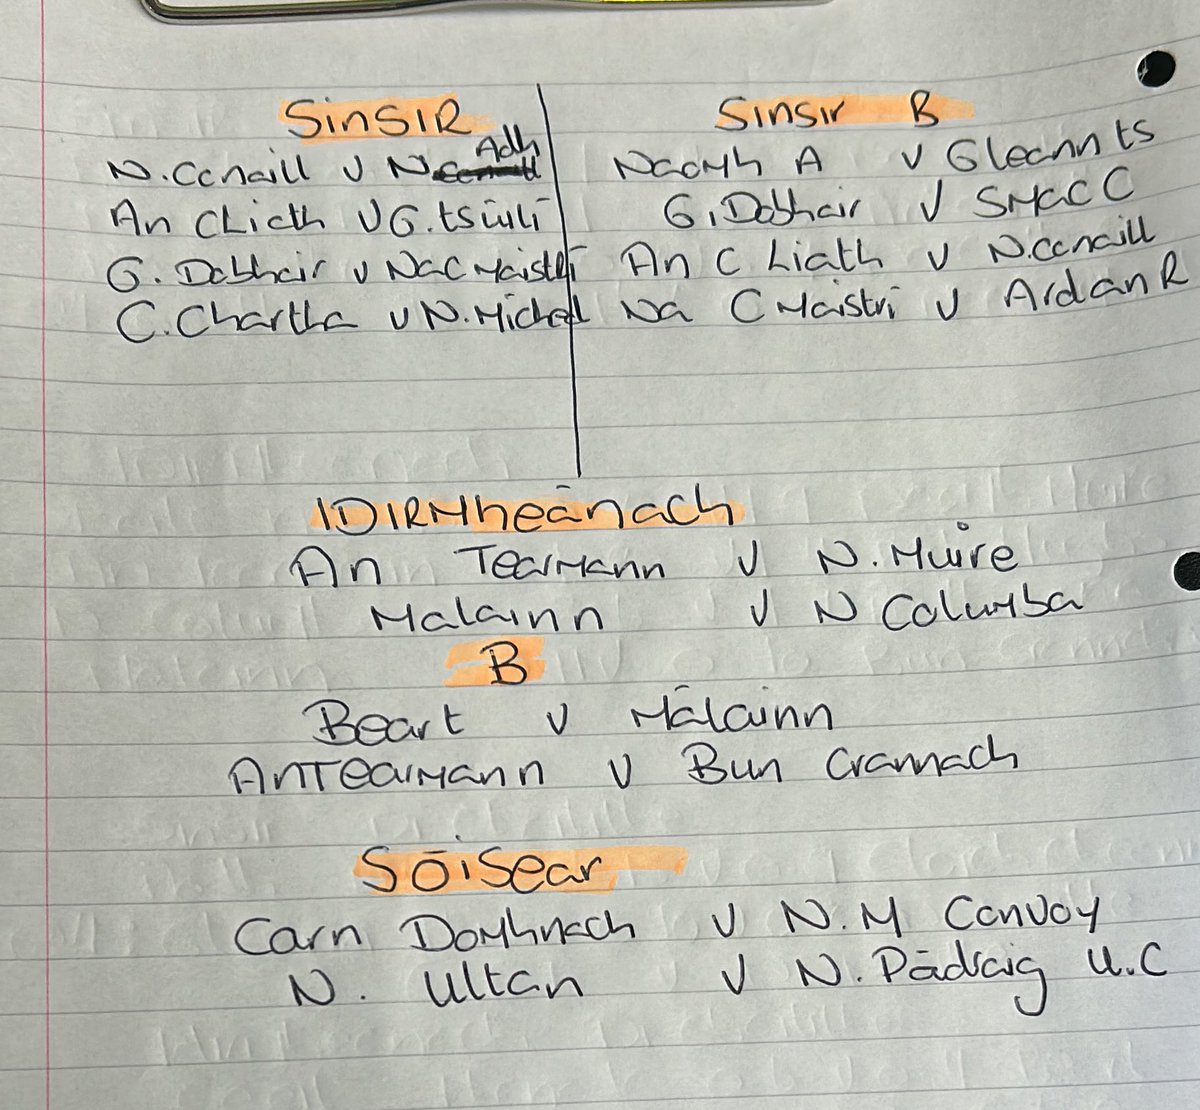 SinSIR
N. Conaill v N Adh
An CLiath v G. tsúilí
G. Dobhair v Na C Maistrí
C. Chartha v N. Mícheál
Sinsir B
Naomh A v Gleannts
G. Dobhair v SMacC
An C Liath v N. Conaill
Na C Maistrí v Ardan R
IDIRMheánach
An Tearmann v N. Muire
Malainn v N Columba
B
Beart v Málainn
AnTearmann v Bun Crannach
SÓiSear
Carn Domhnach v N. M Convoy
N. Ultan v N. Pádraig U.C